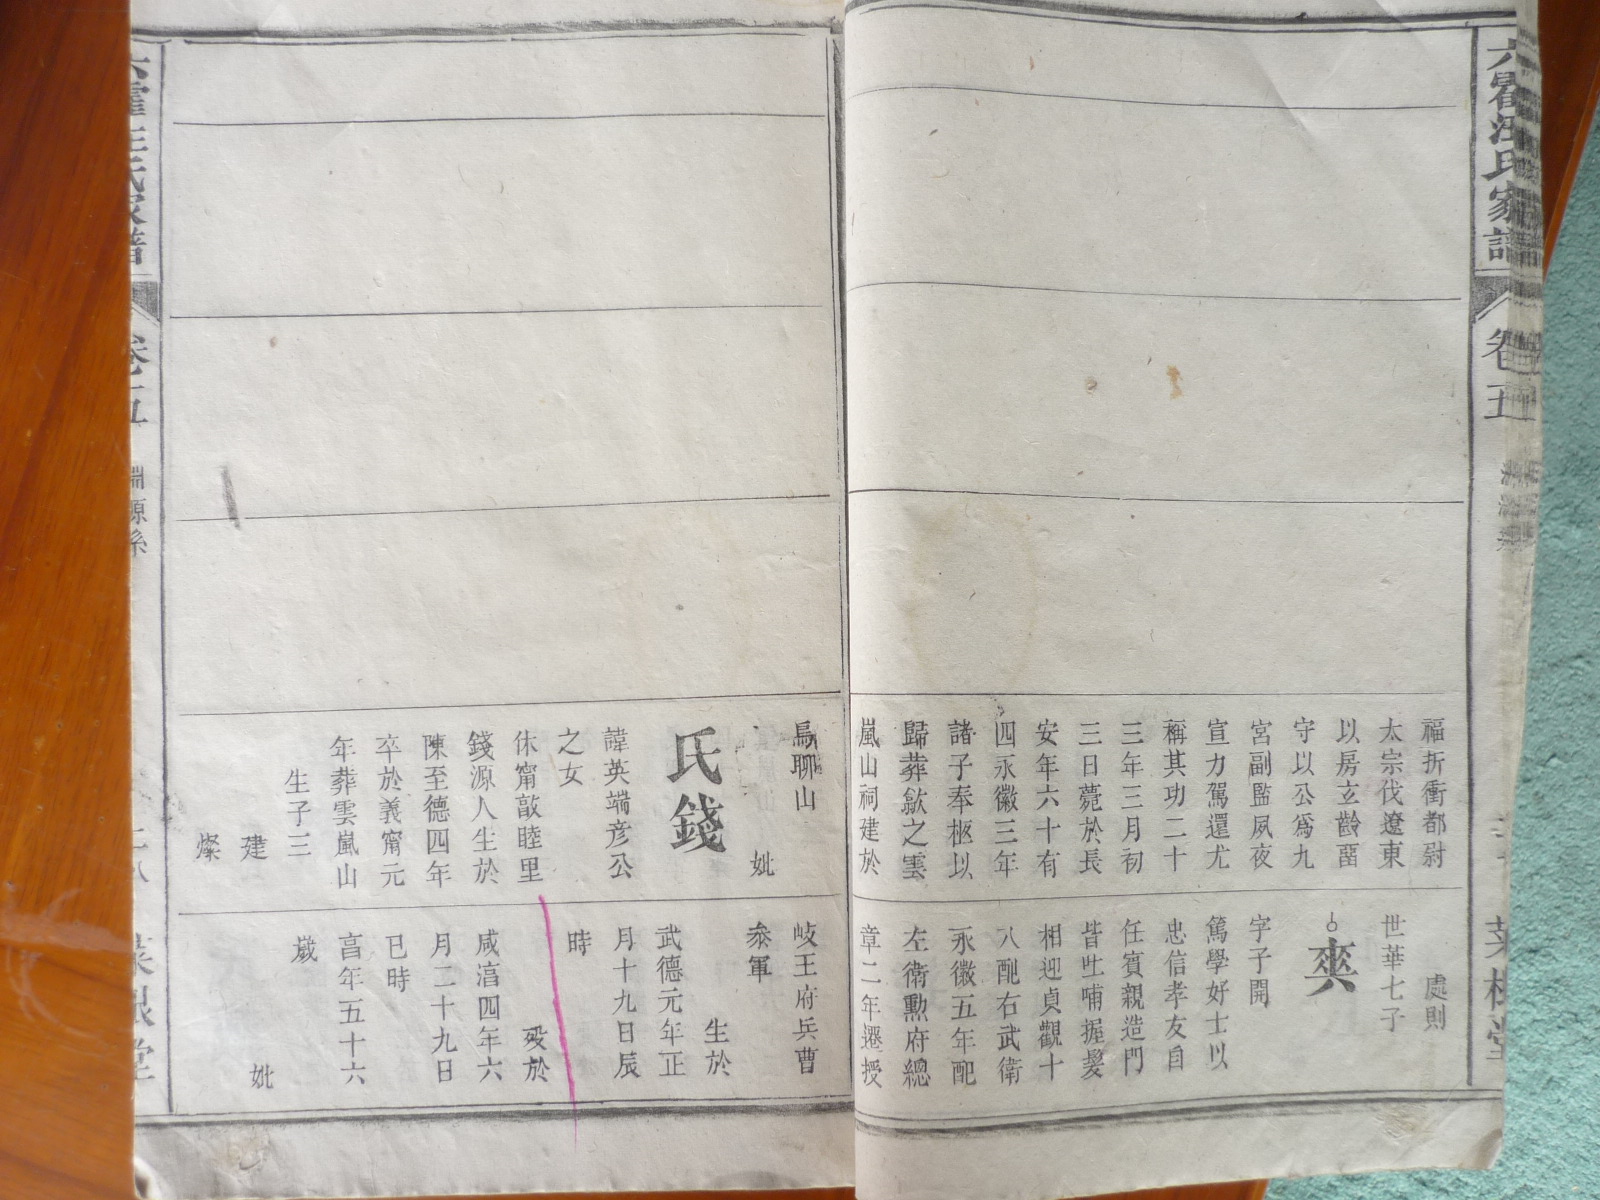 六霍汪氏家譜
卷五
福折衝都尉
太宗伐遼東
以房玄齡畱
守以公爲九
宮副監夙夜
宣力駕還尤
稱其功二十
三年三月初
三日薨於長
安年六十有
四永徽三年
諸子奉柩以
歸葬歙之雲
嵐山祠建於
處則
世華七子
爽
字子開
篤學好士以
忠信孝友自
任賓親造門
皆吐哺握髮
相迎貞觀十
八配右武衛
永徽五年配
左衛勲府總
章二年遷授
菉根堂
烏聊山
妣
氏錢
諱英端彦公
之女
休甯敲睦里
錢源人生於
陳至德四年
卒於義甯元
年葬雲嵐山
生子三
建
燦
岐王府兵曹
叅軍
生於
武德元年正
月十九日辰
時
殁於
咸淊四年六
月二十九日
巳時
亯年五十六
歲
妣
卷五
淵源系